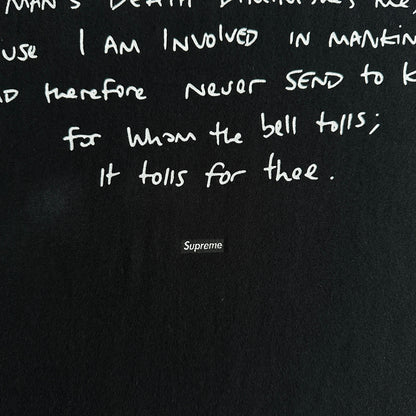 MAN'S DEATH DIMINISHES ME,
USE I AM INVOLVED IN MANKIN
D therefore NEVER SEND to K
for whom the bell tolls;
It tolls for thee.
Supreme